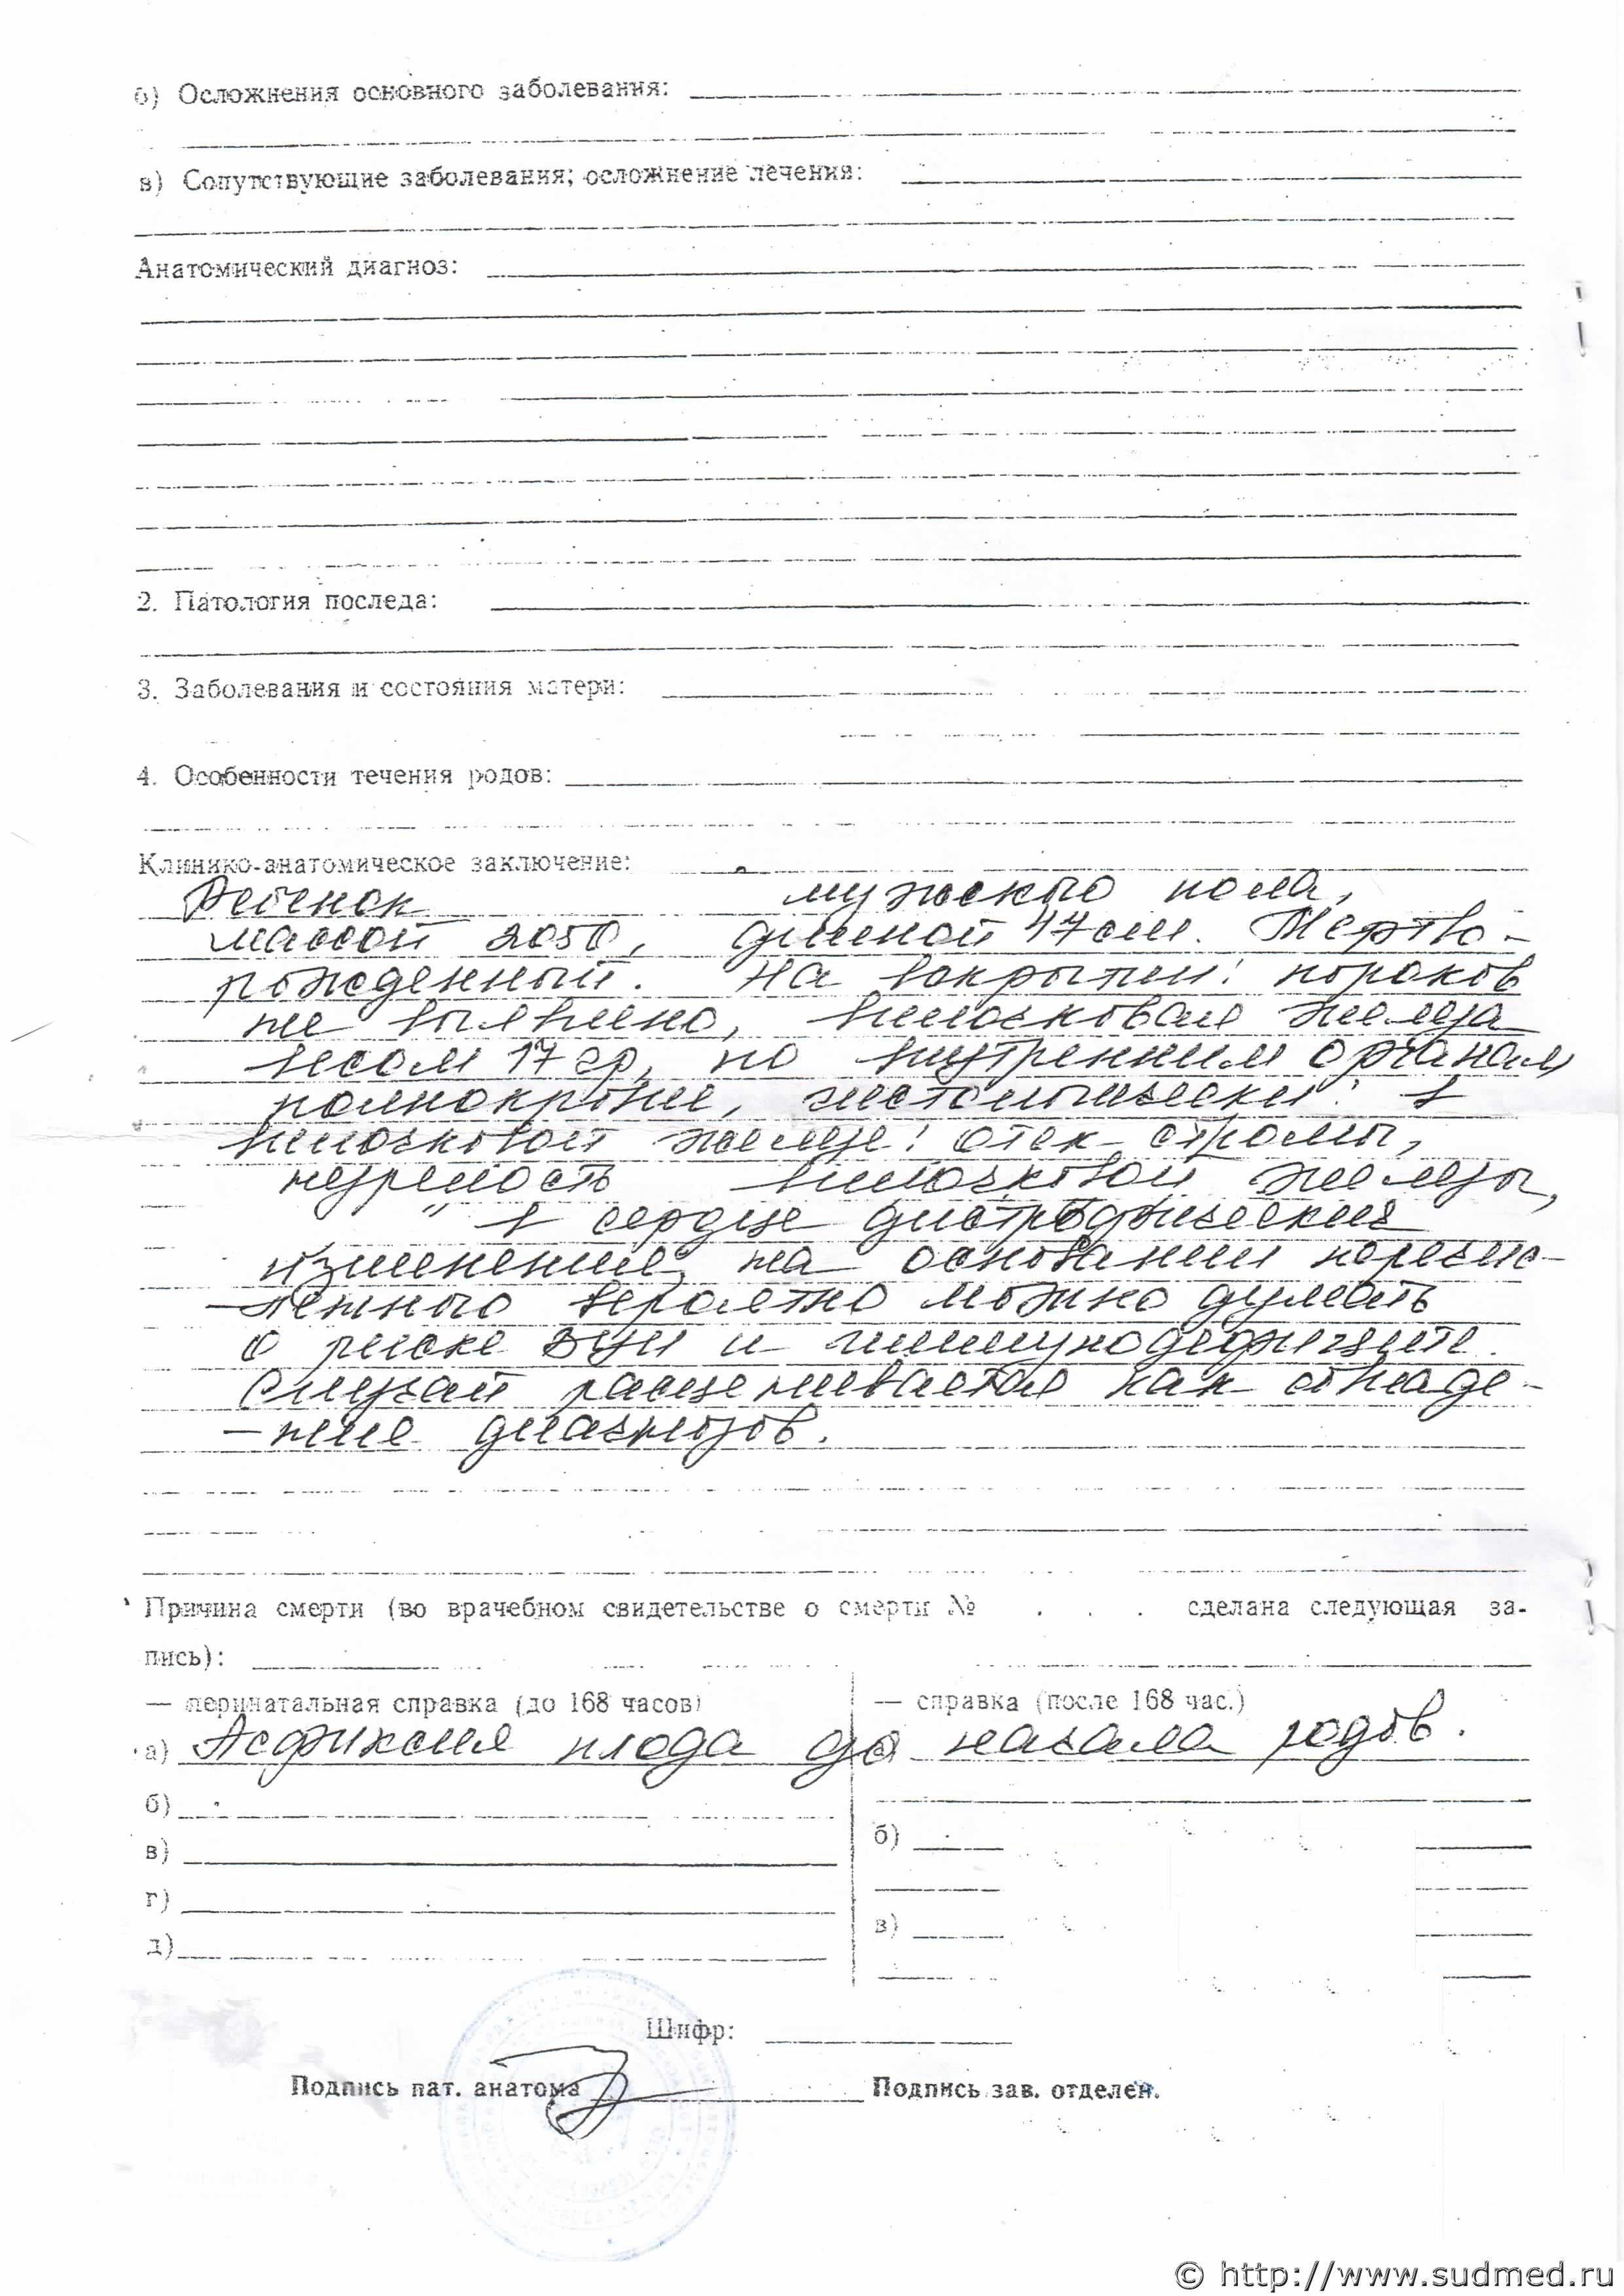 б) Осложнения основного заболевания:
в) Сопутствующие заболевания; осложнение лечения:
Анатомический диагноз:
2. Патология последа:
3. Заболевания и состояния матери:
4. Особенности течения родов:
Клинико-анатомическое заключение:
Ребенок мужского пола,
массой 2050, длиной 47 см. Мертво-
рожденный. На вскрытии: пороков
не выявлено, вилочковая железа
весом 17 гр, по внутренним органам
полнокровие, гистологически: в
вилочковой железе: отек стромы,
незрелость вилочковой железы,
в сердце дистрофические
изменения, на основании перечис-
-ленного вероятно можно думать
о риске ВУИ и иммунодефиците.
Случай расценивается как совпаде-
-ние диагнозов.
Причина смерти (во врачебном свидетельстве о смерти № . . . сделана следующая за-
пись):
— перинатальная справка (до 168 часов) — справка (после 168 час.)
а) Асфиксия плода до начала родов.
б)
б)
в)
г)
в)
д)
Шифр:
Подпись пат. анатома Подпись зав. отделен.
© http://www.sudmed.ru